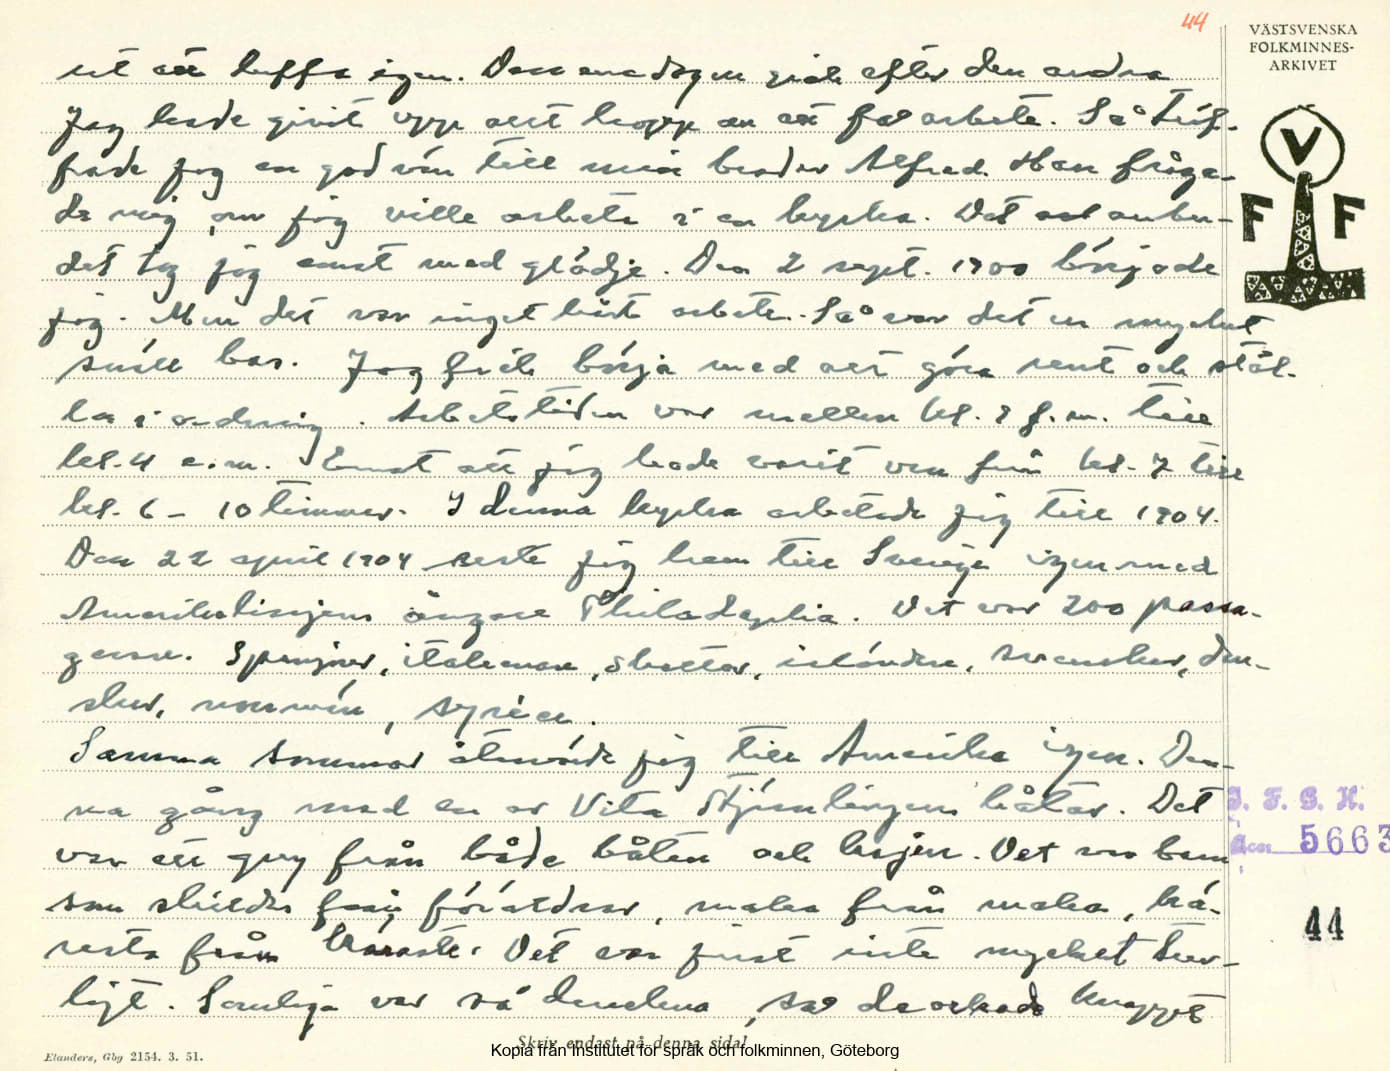 44
VÄSTSVENSKA
FOLKMINNES-
ARKIVET
ut att luffa igen. Den ena dagen gick efter den andra
Jag hade givit upp allt hopp om att få arbete. Så träf-
fade jag en god vän till min broder Alfred. Han fråga-
de mig om jag ville arbeta i en kyrka. Det anbu-
det tog jag emot med glädje. Den 2 sept. 1900 började
jag. Men det var inget hårt arbete. Så var det en mycket
snäll bas. Jag fick börja med att göra rent och stäl-
la i ordning. Arbetstiden var mellan kl. 7 f.m. till
kl. 4 e.m. Emot att jag hade varit van från kl. 7 till
kl. 6 – 10 timmar. I denna kyrka arbetade jag till 1904.
Den 22 april 1904 reste jag hem till Sverige igen med
Amerikalinjens ångare Philadelphia. Det var 200 passa-
gerare. Spanjorer, italienare, skottar, isländare, svenskar, dan-
skar, norrmän, syrier.
Samma sommar återvände jag till Amerika igen. Den-
na gång med en av Vita Stjärnlinjens båtar. Det
var ett gny från både båten och kajen. Det var barn
som skildes från föräldrar, maka från make, kä-
resta från käraste. Det var just inte mycket trev-
ligt. Somliga var så druckna, så de orkade knappt
V
F F
I. F. G. H.
Acc. 5663
44
Skriv endast på denna sida!
Elanders, Gbg 2154. 3. 51.
Kopia från Institutet för språk och folkminnen, Göteborg